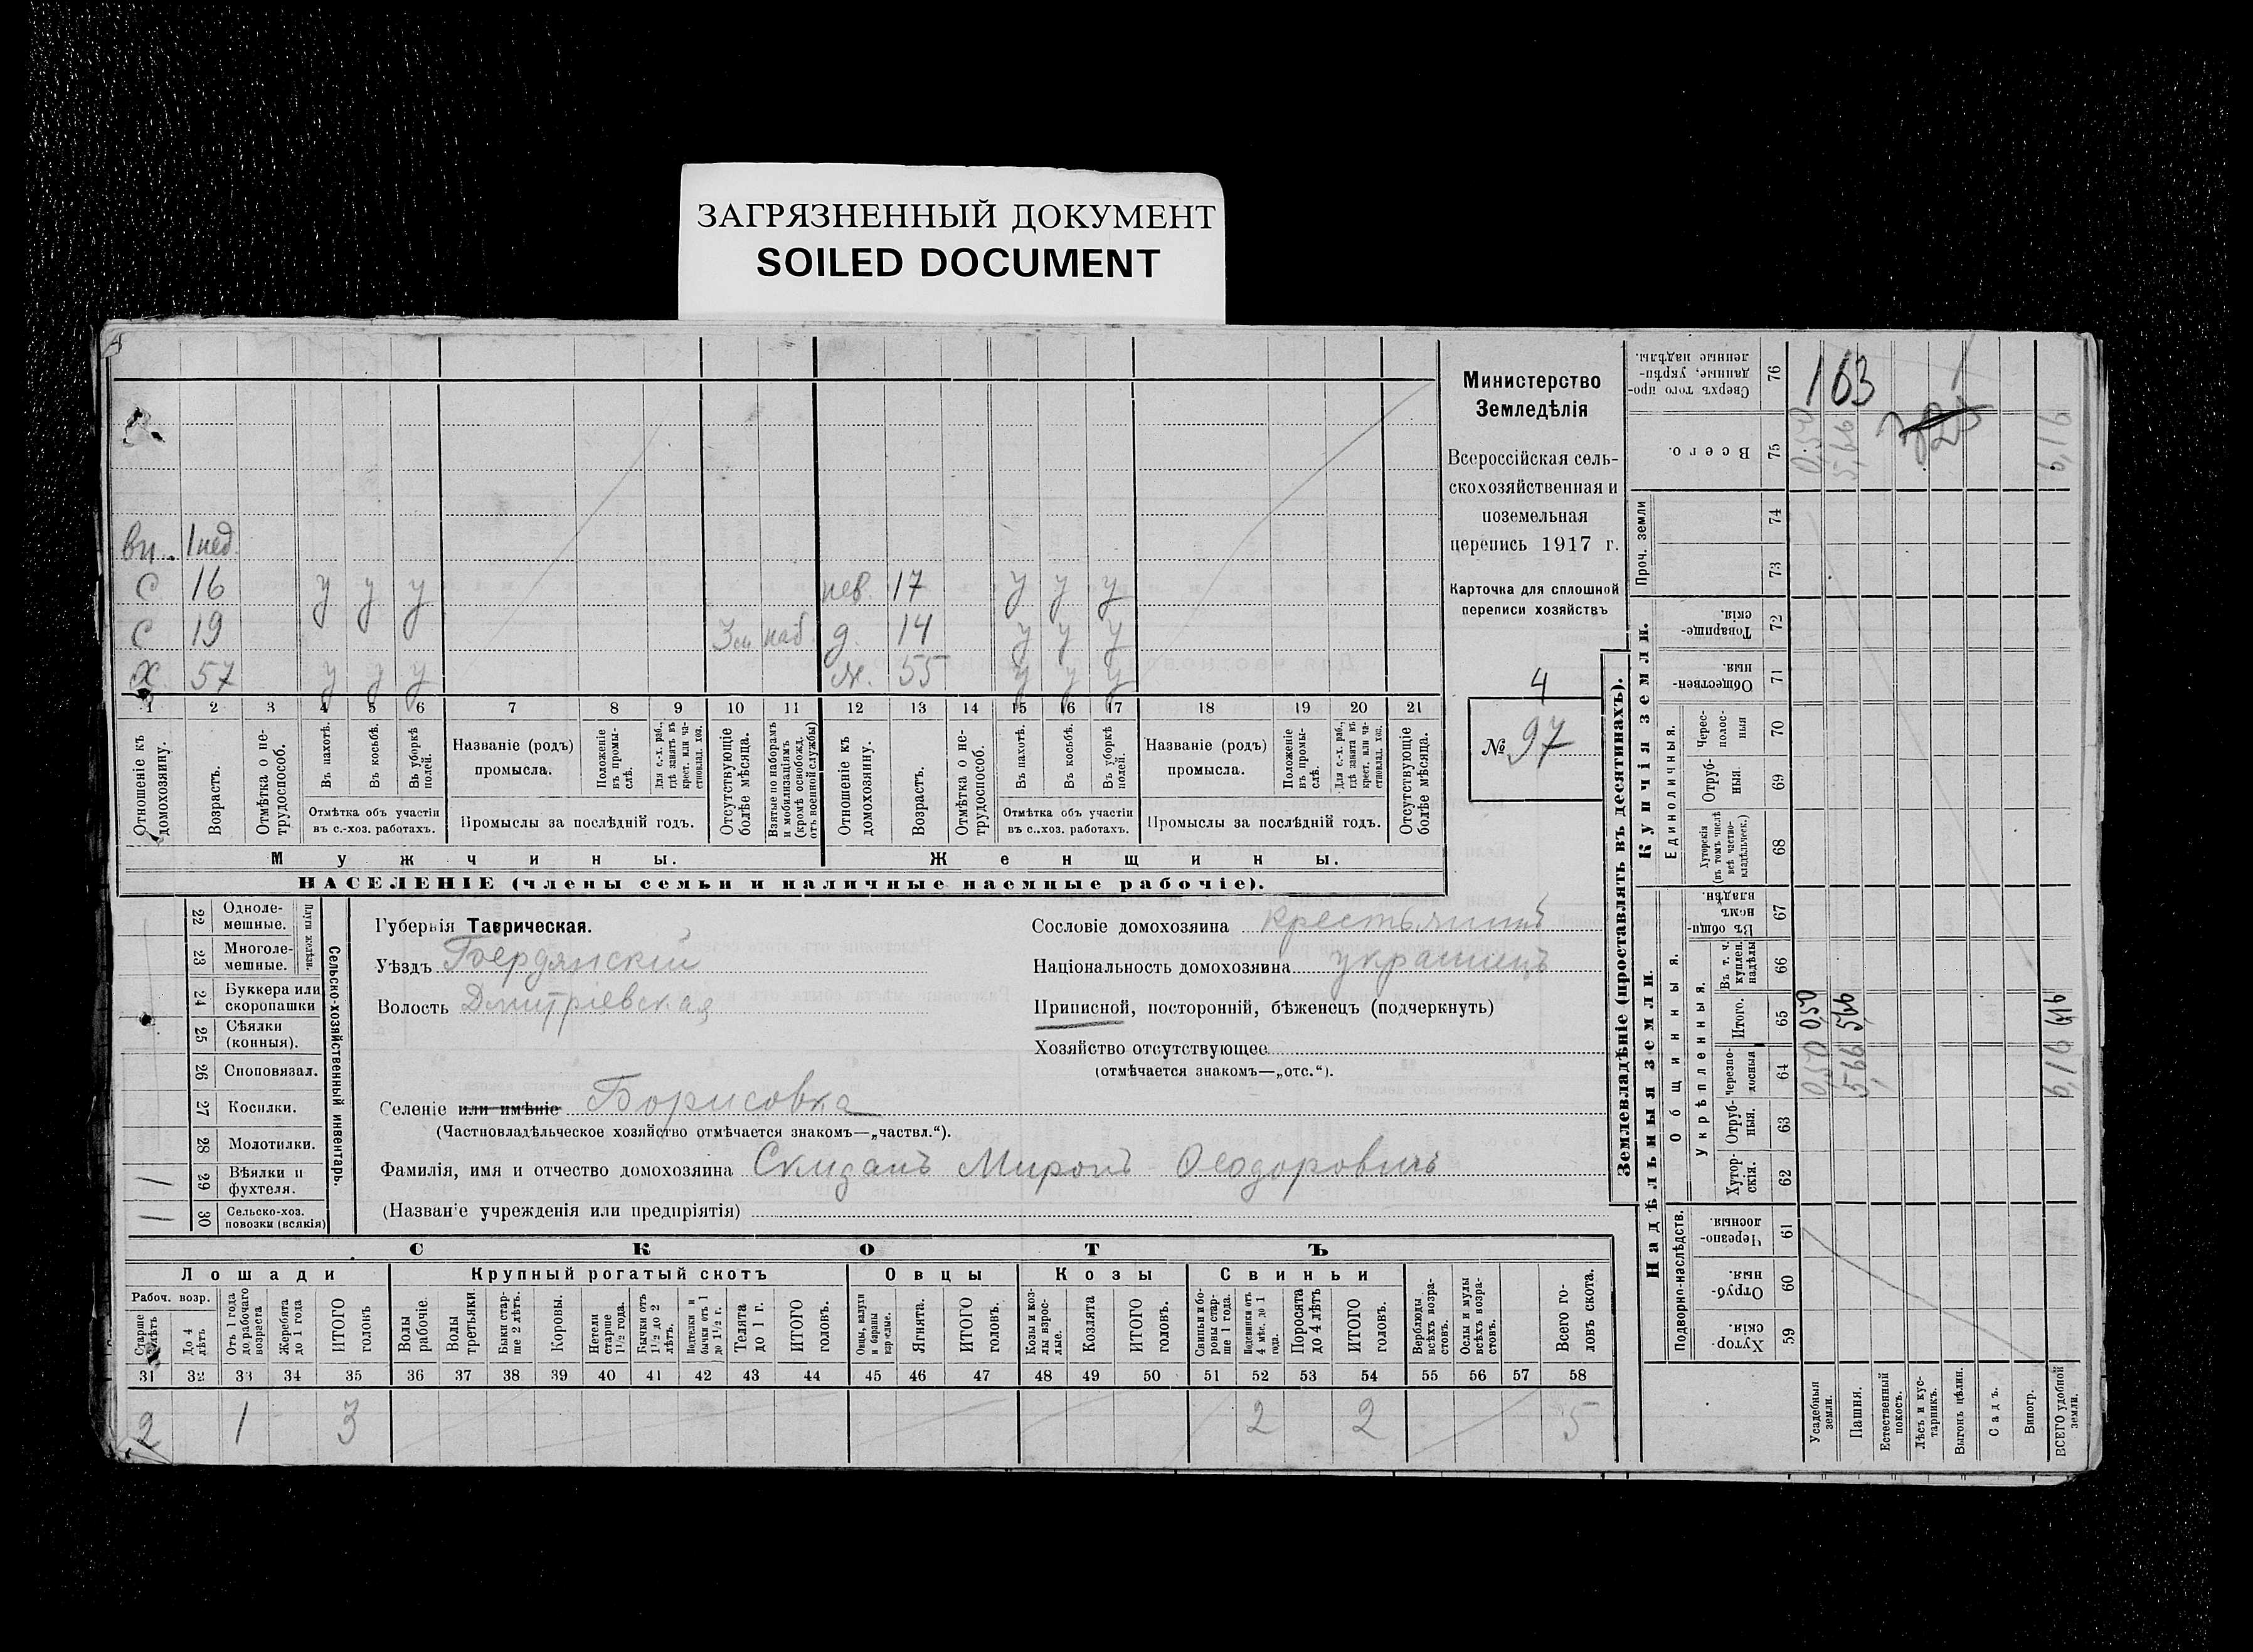 ЗАГРЯЗНЕННЫЙ ДОКУМЕНТ
SOILED DOCUMENT
вн. 1 нед.
С 16 у у у нев. 17 у у у
С 19 3 м наб. д. 14 у у у
Х 57 у у у ж. 55 у у у
1 2 3 4 5 6 7 8 9 10 11 12 13 14 15 16 17 18 19 20 21
Отношеніе къ домохозяину.
Возрастъ.
Отмѣтка о нетрудоспособ.
Въ пахотѣ.
Въ косьбѣ.
Въ уборкѣ полей.
Отмѣтка объ участіи
въ с.-хоз. работахъ.
Названіе (родъ)
промысла.
Положеніе въ промыслѣ.
Для с.-х. раб., гдѣ занятъ въ крест. или частновлад. хоз.
Промыслы за послѣдній годъ.
Отсутствующіе болѣе мѣсяца.
Взятые по наборамъ и мобилизаціямъ (кромѣ освобожд. отъ военной службы)
Отношеніе къ домохозяину.
Возрастъ.
Отмѣтка о нетрудоспособ.
Въ пахотѣ.
Въ косьбѣ.
Въ уборкѣ полей.
Отмѣтка объ участіи
въ с..хоз. работахъ.
Названіе (родъ)
промысла.
Положеніе въ промыслѣ.
Для с.-х. раб., гдѣ занята въ крест. или частновлад. хоз.
Промыслы за послѣдній годъ.
Отсутствующіе болѣе мѣсяца.
Мужчины.
Женщины.
НАСЕЛЕНІЕ (члены семьи и наличные наемные рабочіе).
Министерство
Земледѣлія
Всероссійская сель-
скохозяйственная и
поземельная
перепись 1917 г.
Карточка для сплошной
переписи хозяйствъ
4
№ 97
22 Одноле-
мешные.
23 Многоле-
мешные.
Плуги желѣзн.
24 Буккера или
скоропашки
25 Сѣялки
(конныя).
26 Сноповязал.
27 Косилки.
28 Молотилки.
1 29 Вѣялки и
фухтеля.
1 30 Сельско-хоз.
повозки (всякія)
Сельско-хозяйственный инвентарь.
Губернія Таврическая.
Уѣздъ Бердянскій
Волость Дмитріевская
Сословіе домохозяина Крестьянинъ
Національность домохозяина украинецъ
Приписной, посторонній, бѣженецъ (подчеркнуть)
Хозяйство отсутствующее
(отмѣчается знакомъ—„отс.“).
Селеніе или имѣніе Борисовка
(Частновладѣльческое хозяйство отмѣчается знакомъ—„частвл.“).
Фамилія, имя и отчество домохозяина Скизанъ Миронъ Ѳеодоровичъ
(Названіе учрежденія или предпріятія)
СКОТЪ
Лошади
Крупный рогатый скотъ
Овцы
Козы
Свиньи
Рабоч. возр.
Старше 4 лѣтъ
До 4 лѣтъ
Отъ 1 года до рабочаго возраста
Жеребята до 1 года
ИТОГО головъ
Волы рабочіе.
Волы третьяки.
Быки старше 2 лѣтъ.
Коровы.
Нетели старше 1½ года.
Бычки отъ 1½ до 2 лѣтъ.
Нетелки и бычки отъ 1 до 1½ г.
Телята до 1 г.
ИТОГО головъ.
Овцы, валухи и бараны взрослые.
Ягнята.
ИТОГО головъ.
Козы и козлы взрослые.
Козлята.
ИТОГО головъ.
Свиньи и боровы старше 1 года.
Подсвинки отъ 4 мѣс. до 1 года.
Поросята до 4 лѣтъ
ИТОГО головъ.
Верблюды всѣхъ возрастовъ.
Ослы и мулы всѣхъ возрастовъ.
Всего головъ скота.
31 32 33 34 35 36 37 38 39 40 41 42 43 44 45 46 47 48 49 50 51 52 53 54 55 56 57 58
2 1 3 2 2 5
Землевладѣніе (проставлять въ десятинахъ).
Надѣльныя земли.
Купчія земли.
Проч. земли
Подворно-наслѣдств.
Общинныя.
Укрѣпленныя.
Единоличныя.
Сверхъ того проданные, укрѣпленные надѣлы. 76
Всего. 75
74
73
Товарищескія. 72
Общественныя. 71
Чересполосныя 70
Отрубныя. 69
Хуторскія (въ томъ числѣ всѣ частновладѣльческ.) 68
Въ общинномъ владѣн. 67
Въ т. ч. куплен. надѣлы 66
Итого. 65
Черезполосныя 64
Отрубныя. 63
Хуторскія. 62
Черезполосныя. 61
Отрубныя. 60
Хуторскія. 59
163
0,50 5,66 6,16
0,50 5,66 6,16
0,50 5,66 6,16
Усадебныя земли.
Пашня.
Естественный покосъ.
Лѣсъ и кустарникъ.
Выгонъ цѣлин.
Садъ.
Виногр.
ВСЕГО удобной земли.